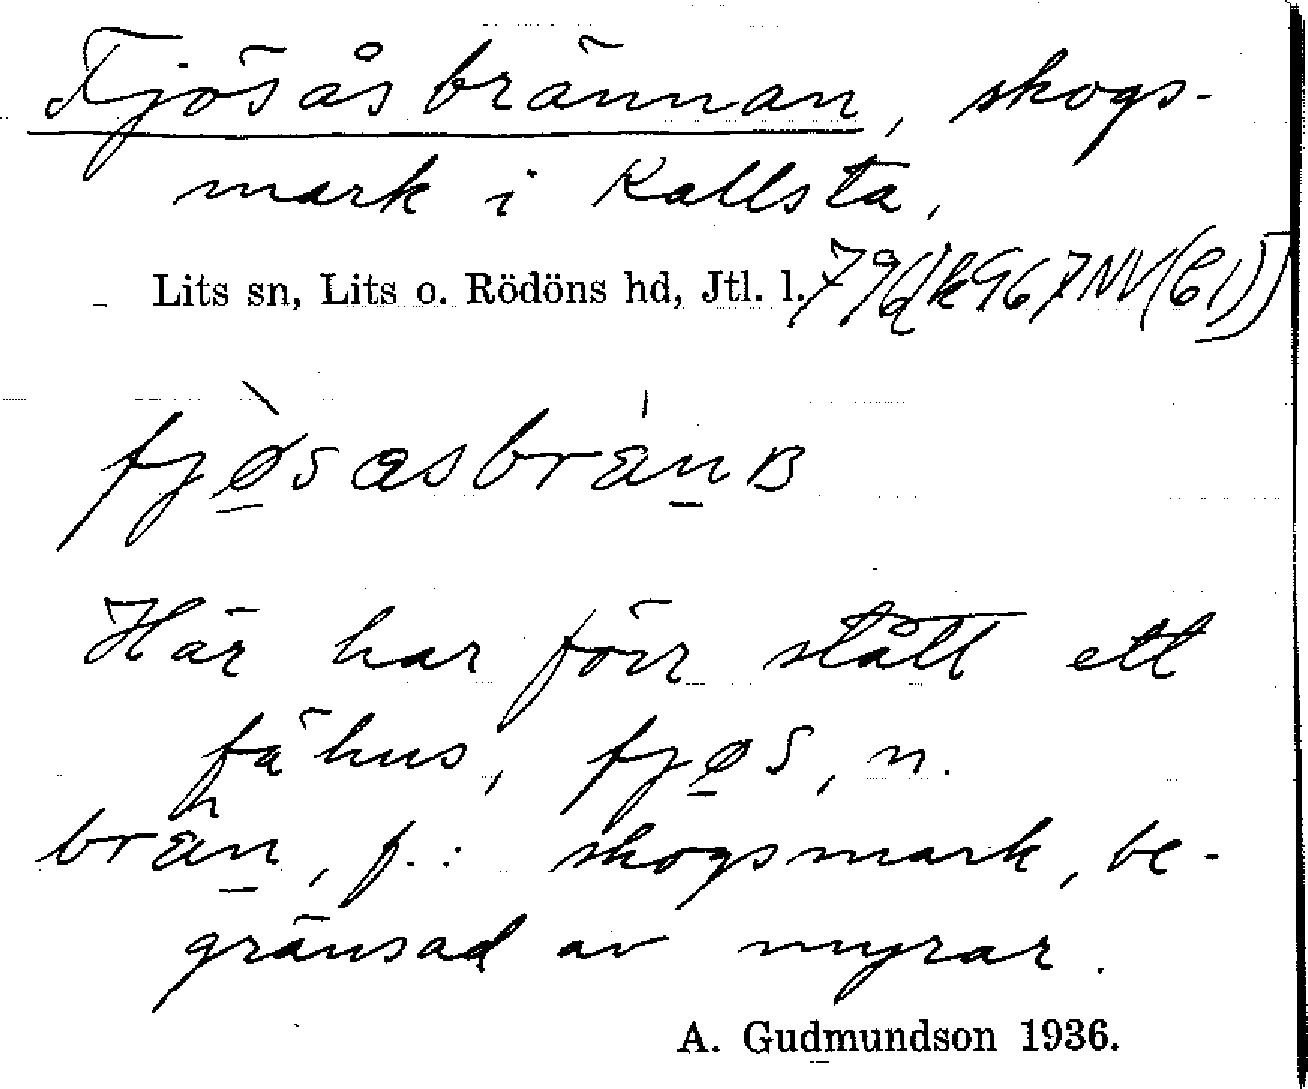 Fjösåsbrännan, skogs-
mark i Kallsta.
Lits sn, Lits o. Rödöns hd, Jtl. l.
fjøsasbränB
Här har förr stått ett
fähus, fjøs, n.
brän, f.: skogsmark, be-
gränsad av myrar.
A. Gudmundson 1936.